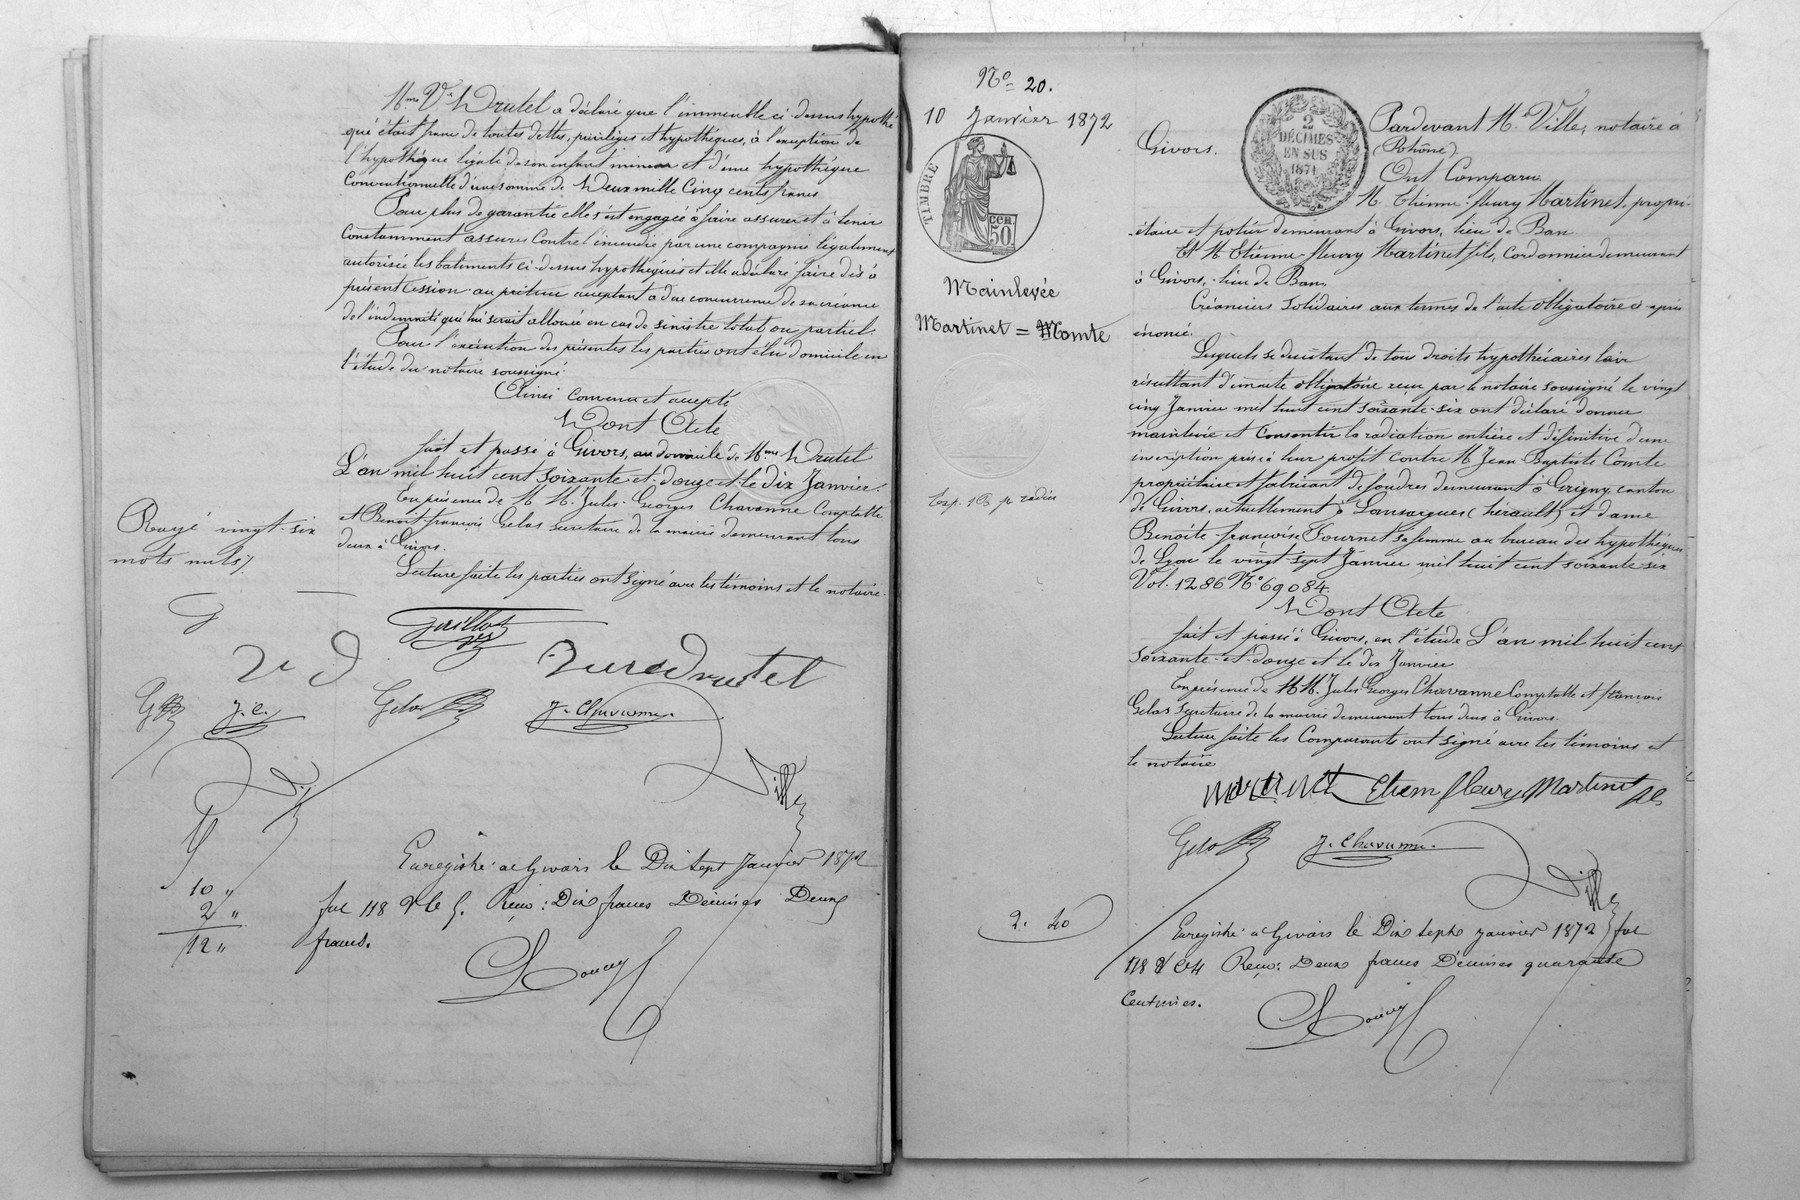 Mme Ve Drutel a déclaré que l'immeuble ci-dessus hypothé
qué était franc de toutes dettes, privilèges et hypothèques, à l'exception de
l'hypothèque légale de son enfant mineur et d'une hypothèque
Conventionnelle d'une somme de Deux mille Cinq cents francs
Pour plus de garantie elle s'est engagée à faire assurer et à tenir
Constamment assurés Contre l'incendie par une compagnie légalement
autorisée les batiments ci-dessus hypothéqués et elle a déclaré faire dès à
présent Cession au prêteur acceptant a due concurrence de sa créance
de l'indemnité qui lui serait allouée en cas de sinistre total ou partiel.
Pour l'exécution des présentes les parties ont élu domicile en
l'étude du notaire soussigné
Ainsi Convenu et accepté
Dont Acte
fait et passé à Givors, au domicile de Mme Drutel
L'an mil huit cent soixante-et-douze et le dix Janvier.
En présence de M. M. Jules-Georges Chavanne Comptable
et Benoit-françois Gelas Secretaire de la mairie demeurant tous
deux à Givors.
Lecture faite les parties ont signé avec les témoins et le notaire.
Rayé vingt-six
mots nuls
V D
veuve Drutel
J. C.
Gelas
J. Chavanne
Ville
Enregistré à Givors le Dix sept Janvier 1872
fol 118 Vo C 5. Reçu: Dix francs Décimes Deux
francs.
10 "
2 "
12 "
No 20.
10 Janvier 1872
TIMBRE
CEN
50
Mainlevée
Martinet = Comte
2. 40
2
DÉCIMES
EN SUS
1871
Pardevant Me Ville, notaire à
Givors. (Rhône)
Ont Comparu
M. Etienne-fleury Martinet, propri-
étaire et potier demeurant à Givors, lieu de Ban
Et M. Etienne-fleury Martinet fils, Cordonnier demeurant
à Givors, lieu de Ban
Créanciers Solidaires aux termes de l'acte obligatoire ci-après
énoncé.
Lesquels se désistant de tous droits hypothécaires leur
résultant d'un acte obligatoire reçu par le notaire soussigné le vingt
cinq Janvier mil huit cent soixante-six ont déclaré donner
mainlevée et Consentir la radiation entière et définitive d'une
inscription prise à leur profit contre M. Jean Baptiste Comte
propriétaire et fabricant de foudres demeurant à Grigny, canton
de Givors, actuellement à Lansargues (hérault) et dame
Benoite-françoise Fournet sa femme au bureau des hypothèques
de Lyon le vingt-sept Janvier mil huit cent soixante six
Vol. 1286 No 69084.
Dont Acte
fait et passé à Givors, en l'étude L'an mil huit cent
soixante-et-douze et le dix Janvier
En présence de MM. Jules Georges Chavanne Comptable et françois
Gelas Secretaire de la mairie demeurant tous deux à Givors.
Lecture faite les Comparants ont signé avec les témoins et
le notaire
Martinet Etienne fleury Martinet fils
Gelas
J. Chavanne.
Ville
Enregistré à Givors le Dix sept Janvier 1872 fol
118 Vo C 4 Reçu: Deux francs Décimes quarante
Centimes.